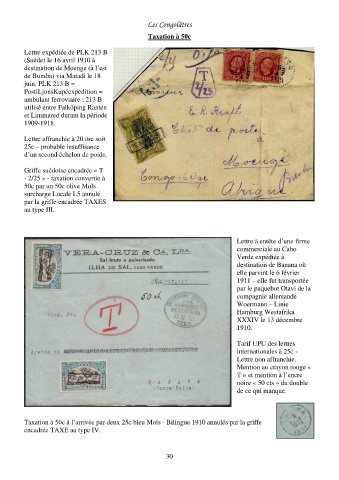 Les Congolâtres
Taxation à 50c
Lettre expédiée de PLK 213 B
(Suède) le 16 avril 1910 à
destination de Moenge (à l'est
de Bumba) via Matadi le 18
juin. PLK 213 B =
PostiLjonsKupéexpedition =
ambulant ferroviaire ; 213 B
utilisé entre Falköping Ranten
et Limmared durant la période
1909-1918.
Lettre affranchie à 20 öre soit
25c – probable insuffisance
d'un second échelon de poids.
Griffe suédoise encadrée « T
- 2/25 » - taxation convertie à
50c par un 50c olive Mols
surcharge Locale L5 annulé
par la griffe encadrée TAXES
au type III.
T
2/25
E. R. Kraft
Chef de poste
à
Moenge
Congo-
Afrique
Lettre à entête d'une firme
commerciale au Cabo
Verde expédiée à
destination de Banana où
elle parvint le 6 février
1911 – elle fut transportée
par le paquebot Otavi de la
compagnie allemande
Woermann – Linie
Hamburg Westafrika
XXXIV le 13 décembre
1910.
Tarif UPU des lettres
internationales à 25c -
Lettre non affranchie.
Mention au crayon rouge «
T » et mention à l'encre
noire « 50 cts » du double
de ce qui manque.
VERA-CRUZ & CA, LDA.
Sal bruto e pulverisado
ILHA DO SAL, CABO VERDE
50
T
BANANA
(Congo Belge)
Taxation à 50c à l'arrivée par deux 25c bleu Mols - Bilingue 1910 annulés par la griffe
encadrée TAXE au type IV.
30